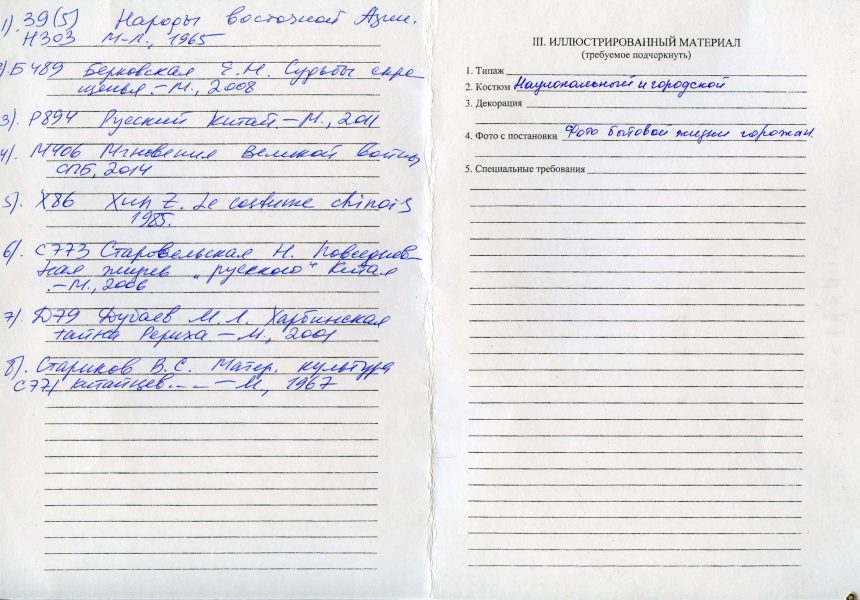 1). 39(5) Народы восточной Азии.
Н303 М-Л., 1965
2) Б489 Берковская Е.Н. Судьбы скре-
щенья. – М., 2008
3). Р894 Русский Китай. – М., 2011
4). М406 Мгновения Великой войны
СПБ, 2014
5). Х86 Z. Le costume chinois
1985.
6). С773 Старосельская Н. Повседнев-
ная жизнь "русского" Китая
. – М., 2006
7). Д79 Дубаев М.Л. Харбинская
тайна Рериха – М., 2001
8). Стариков В.С. Матер. культура
С771 китайцев. – – – М., 1967
III. ИЛЛЮСТРИРОВАННЫЙ МАТЕРИАЛ
(требуемое подчеркнуть)
1. Типаж
2. Костюм Национальный и городской
3. Декорация
4. Фото с постановки Фото бытовой жизни горожан
5. Специальные требования